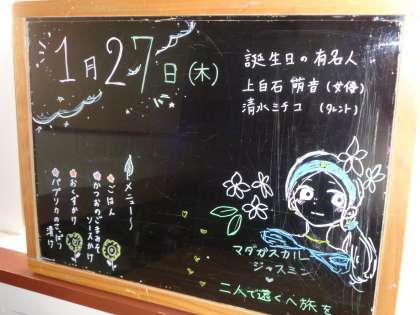 1月27日(木)
誕生日の有名人
上白石 萌音(女優)
清水ミチコ (タレント)
メニュー〜
ごはん
かつおのごまみそ
ソースかけ
おくずかけ
パプリカの
漬け
マダガスカル
ジャスミン
二人で遠くへ旅を